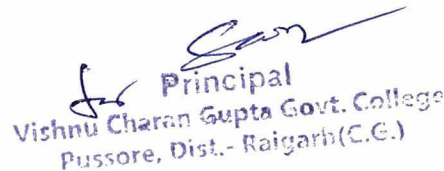 for
Principal
Vishnu Charan Gupta Govt. College
Pussore, Dist.- Raigarh(C.G.)